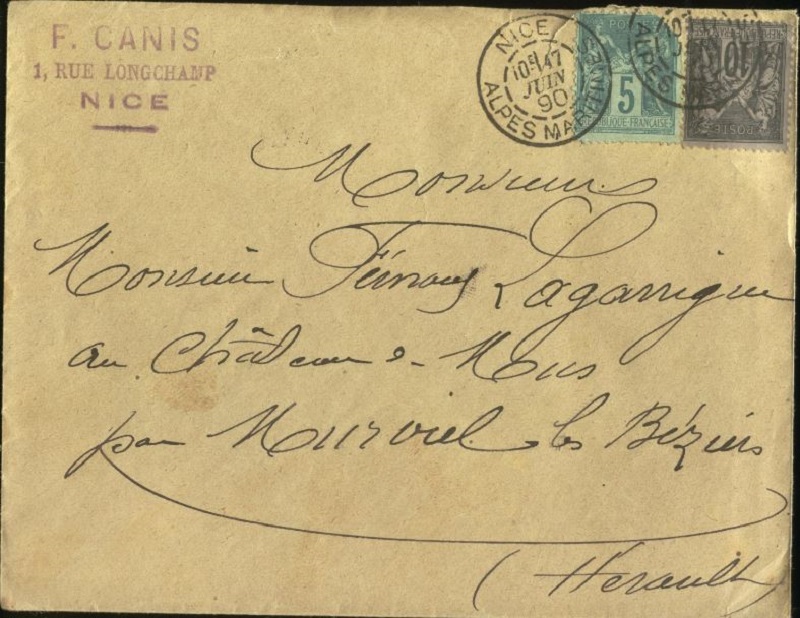 F. CANIS
1, RUE LONGCHAMP
NICE
NICE
10E 17
JUIN
90
ALPES MARITIMES
POSTE
5
RÉPUBLIQUE FRANÇAISE
10
POSTE
ALPES MARITIMES
Monsieur
Monsieur Fernand Lagarrigue
au Château de Mus
par Murviel les Béziers
(Hérault)